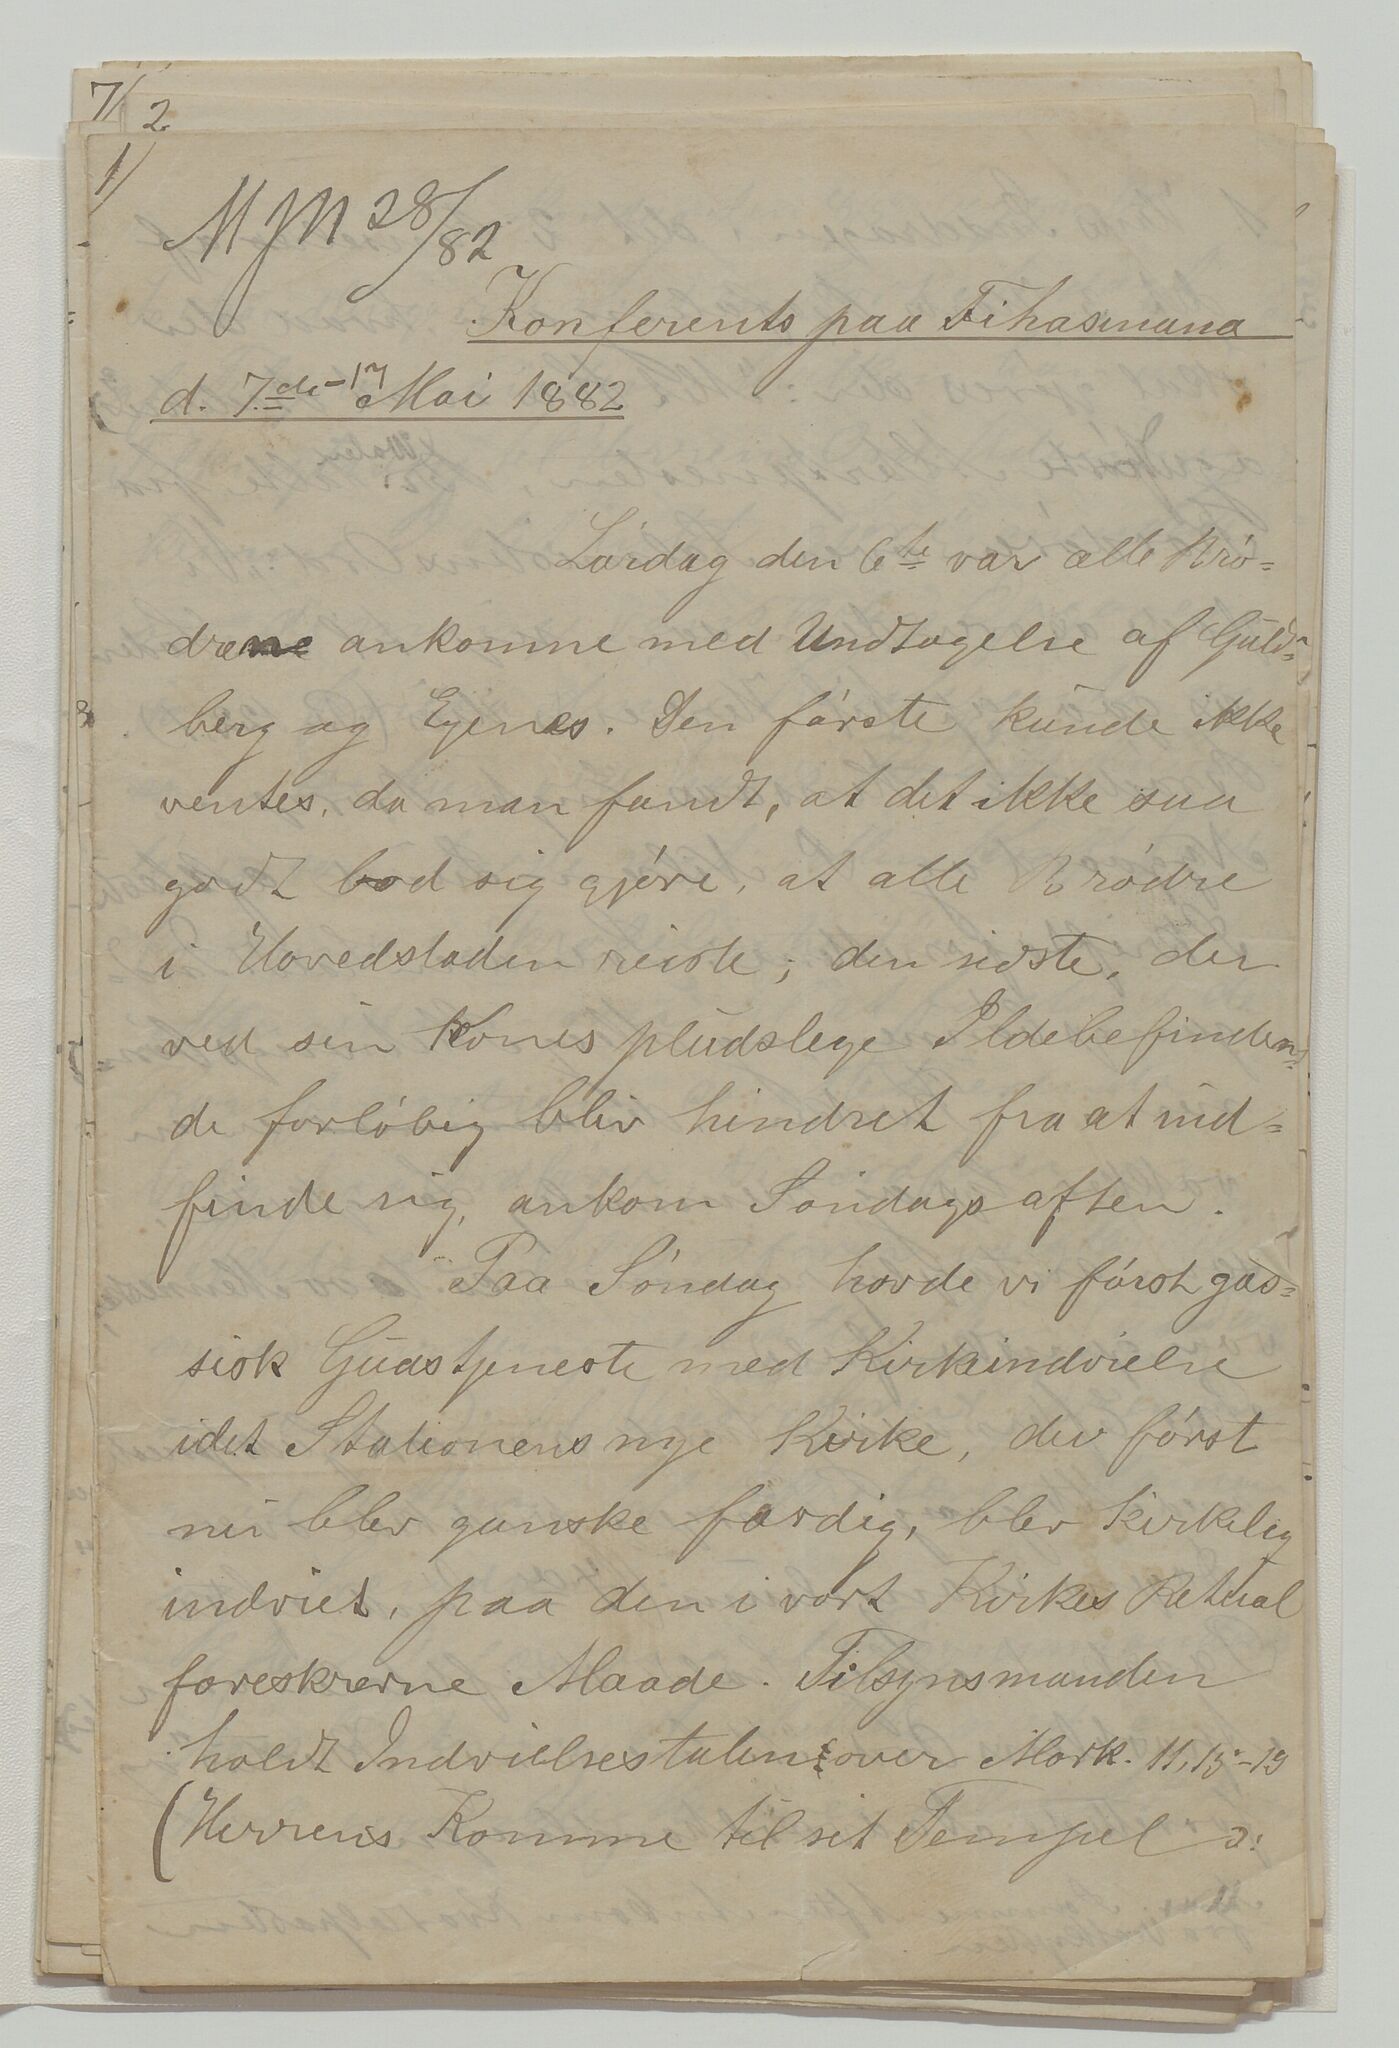 7/
2.
1/
MJM 28/82
Konferents paa Fihasinana
d. 7de-17 Mai 1882
Lørdag den 6te var alle Brø-
drene ankomne med Undtagelse af Guld-
berg og Egenes. Den første kunde ikke
ventes, da man fandt, at det ikke saa
godt lod sig gjøre, at alle Brødre
i Hovedstaden reiste; den sidste, der
ved sin Kones pludslege Ildebefinden-
de forløbig blev hindret fra at ind-
finde sig, ankom Søndags aften.
Paa Søndag havde vi først gas-
sisk Gudstjeneste med Kirkeindvielse
idet Stationens nye Kirke, der først
nu blev ganske færdig, blev kirkelig
indviet, paa den i vort Kirkes Retual
foreskrevne Maade. Tilsynsmanden
holdt Indvielsestalen over Mark. 11,15-19
(Herrens Komme til sit Tempel ɔ: